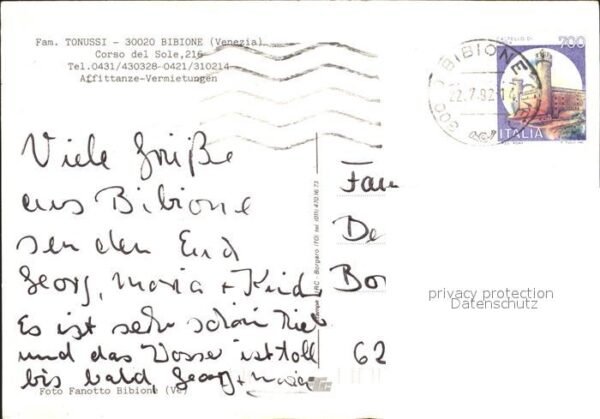 Fam. TONUSSI - 30020 BIBIONE (Venezia)
Corso del Sole,216
Tel.0431/430328-0421/310214
Affittanze-Vermietungen
CASTELLO DI
700
BIBIONE
22.7.92
ITALIA
Viele Grüße
aus Bibione
senden Euch
Georg, Maria + Kind
Es ist sehr schön hier
und das Wasser ist toll
bis bald, Georg + Maria
Fam
De
Bor
62
privacy protection
Datenschutz
Borgaro (TO) tel. (011) 470.16.73
Foto Fanotto Bibione (Ve)